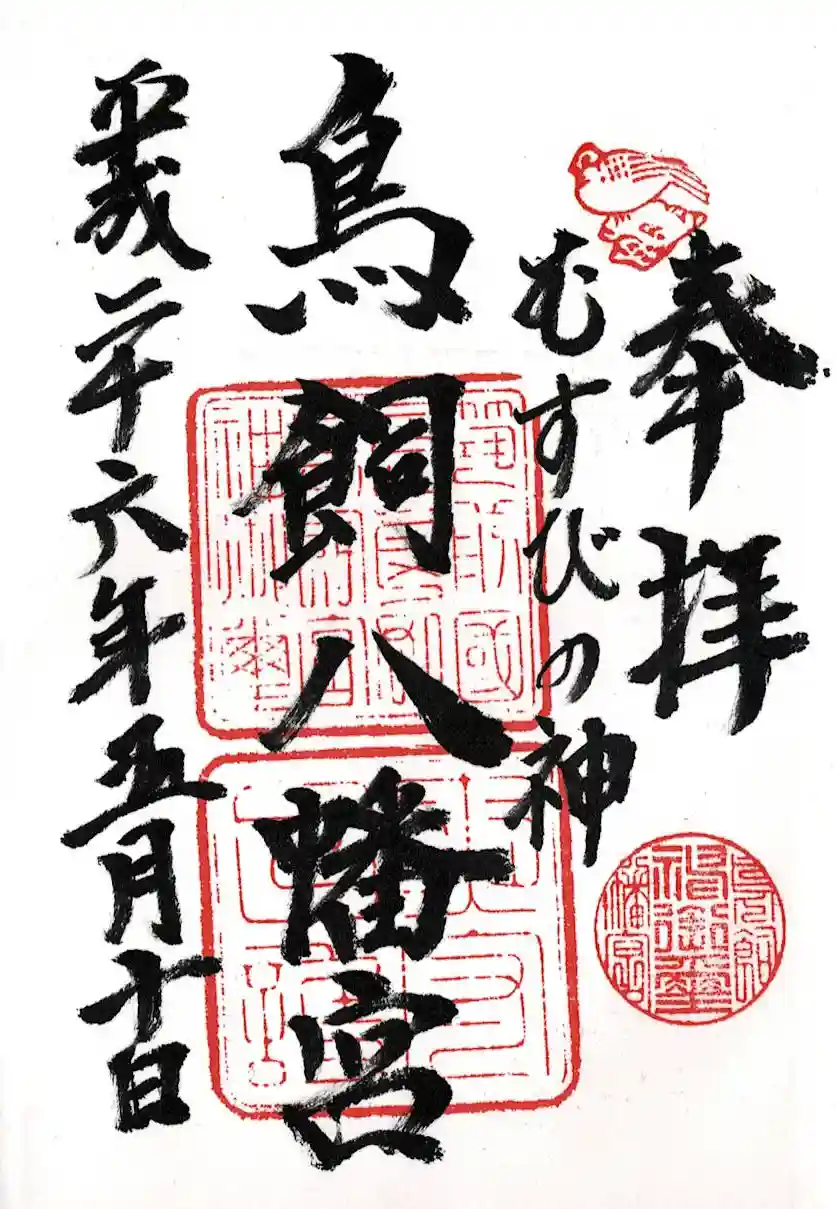 奉拝
むすびの神
鳥飼八幡宮
平成二十六年五月十日